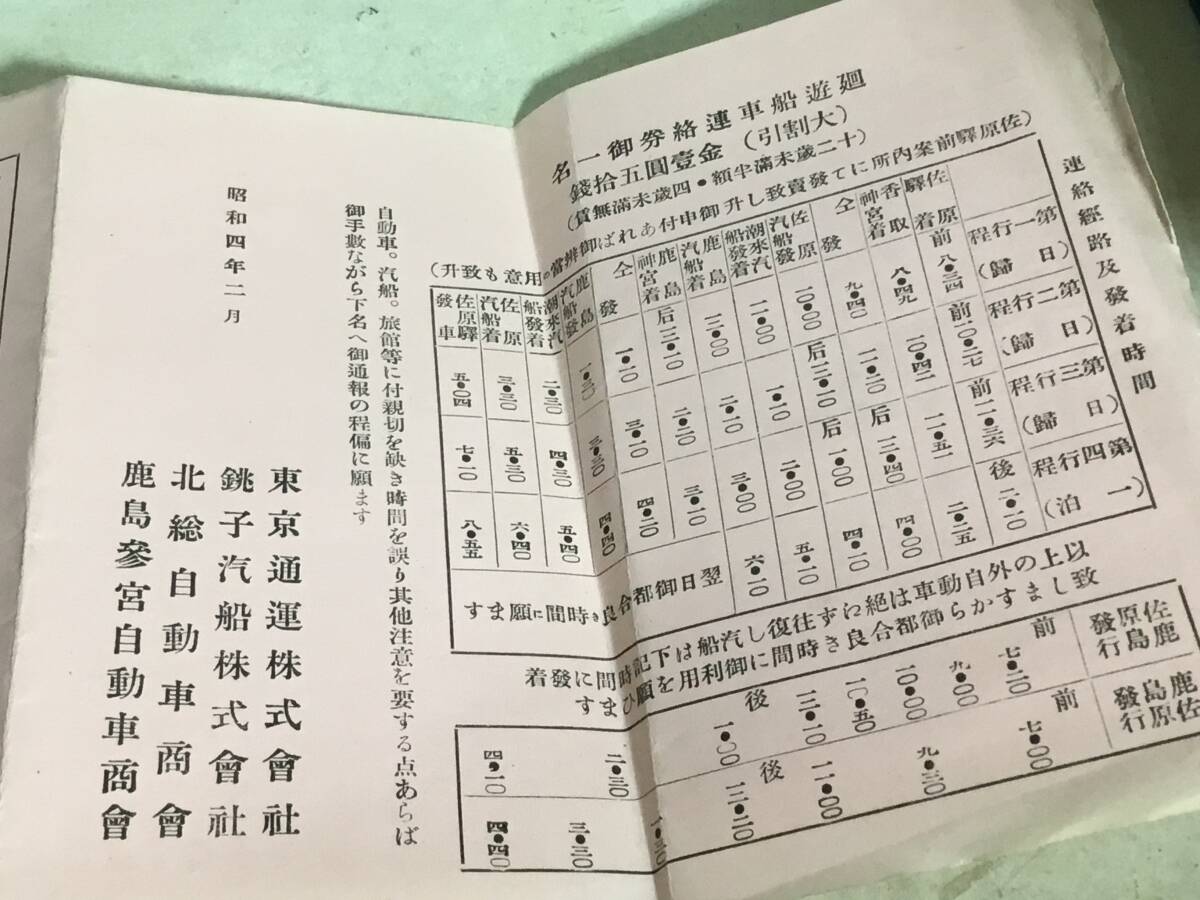 廻遊船車連絡券御一名
金壹圓五拾錢(大割引)
(十二歳未滿半額・四歳未滿無賃)
(佐原驛前案內所にて發賣致し升御申付あれば御辨當の用意も致升)
連絡經路及發着時間
第一行程(日歸)
第二行程(日歸)
第三行程(日歸)
第四行程(一泊)
佐原驛着 前八・三四 前一〇・二七 前一一・三六 後二・一〇
香取神宮着 八・四九 一〇・四二 一一・五一 二・二五
仝發 九・四〇 一一・二〇 后一二・四〇 四・〇〇
佐原汽船發 一〇・〇〇 后一二・一〇 后一・〇〇 四・一〇
潮來汽船發着 一一・〇〇 一・一〇 二・〇〇 五・一〇
鹿島汽船着 一二・〇〇 二・一〇 三・〇〇 六・一〇
鹿島神宮着 后一二・一〇 二・二〇 三・一〇
仝發 一・一〇 三・一〇 四・二〇
鹿島汽船發 一・三〇 三・三〇 四・四〇
潮來汽船發着 二・三〇 四・三〇 五・四〇
佐原汽船着 三・三〇 五・三〇 六・四〇
佐原驛發車 五・〇四 七・一〇 八・五五
翌日御都合良き時間に願ます
以上の外自動車は絶ゑず往復し汽船は下記時間に發着
致しますから御都合良き時間に御利用を願ひます
佐原發鹿島行 前 七・二〇 九・〇〇 一〇・〇〇 一〇・五〇 後 一二・一〇 一・〇〇 二・三〇 四・一〇
鹿島發佐原行 前 七・〇〇 九・三〇 一一・〇〇 後 一二・二〇 一・三〇 三・三〇 四・四〇
自動車。汽船。旅館等に付親切を缺き時間を誤り其他注意を要する点あらば
御手數ながら下名へ御通報の程偏に願ます
昭和四年二月
東京通運株式會社
銚子汽船株式會社
北総自動車商會
鹿島參宮自動車商會